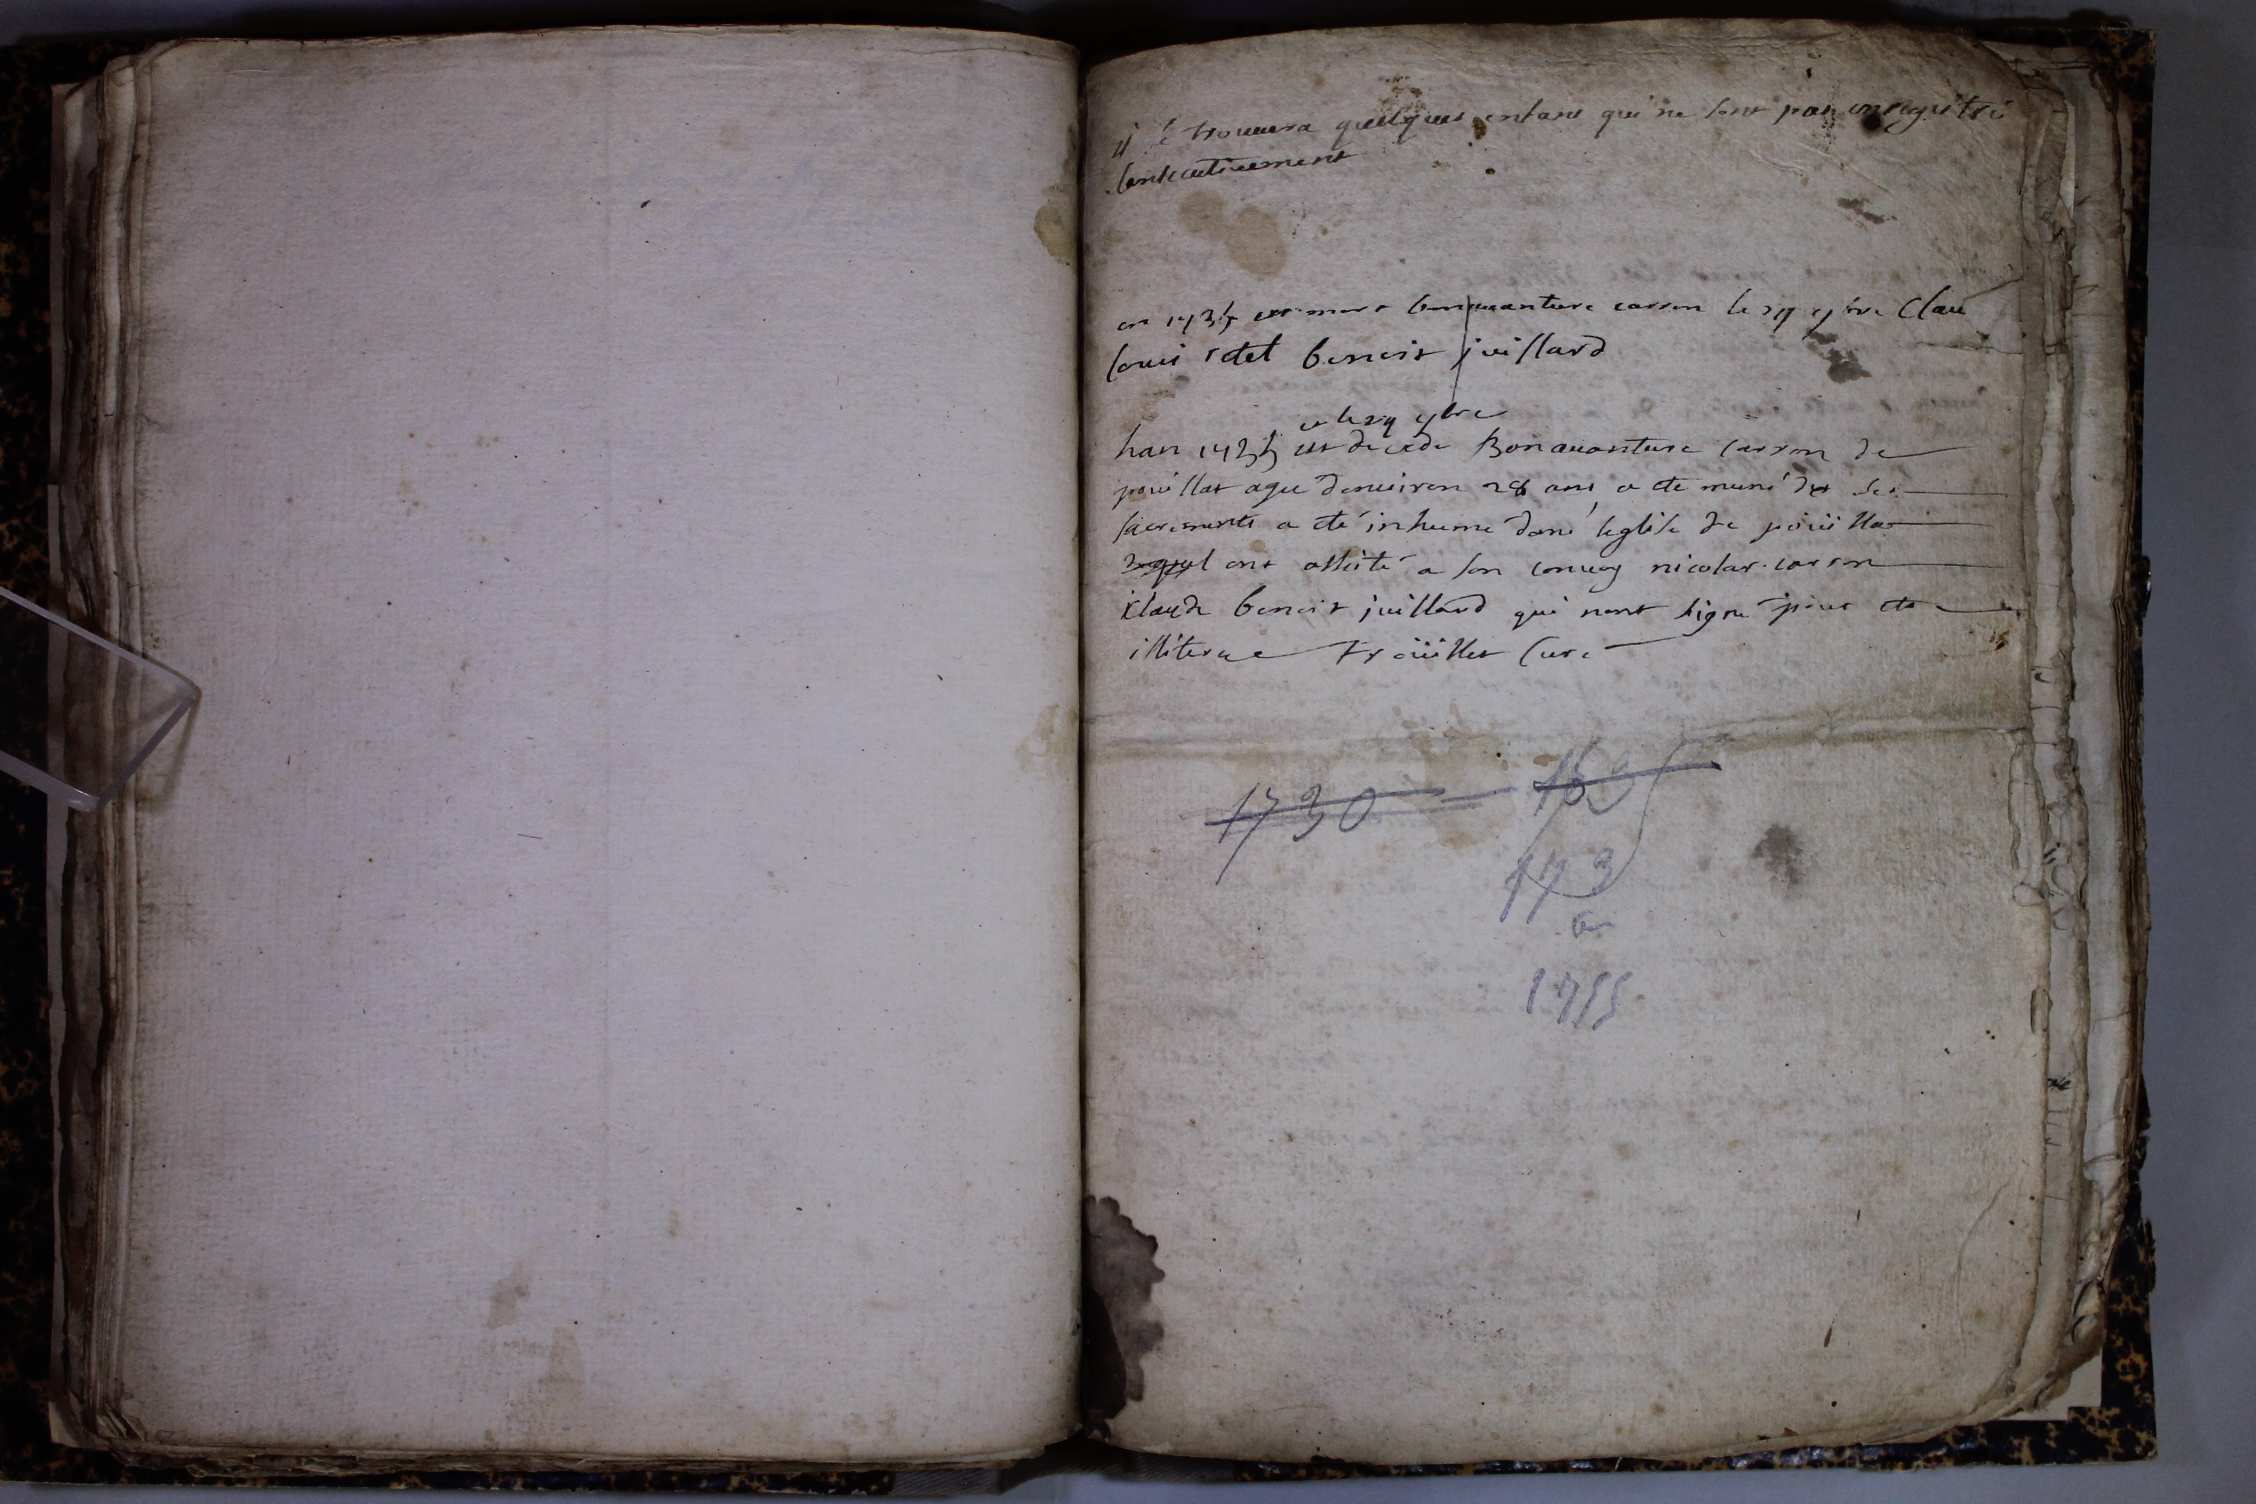 il se trouuera quelques enfans qui ne sont pas enregitré
consecutiuement
en 173 est mort bonauanture carron le 29 9bre Clau
benoit juillard
et le 29 9bre
lan 173 est decede Bonauanture carron de
pouillat agee denuiron 28 ans a ete muni de ses
sacrements a eté inhume dans leglise de poüillat
ont assité a son conuoy nicolas carron
claude benoit juillard qui nont signe pour ete
illiterae Troüillet Curé
1730 — 16
173
a
1755